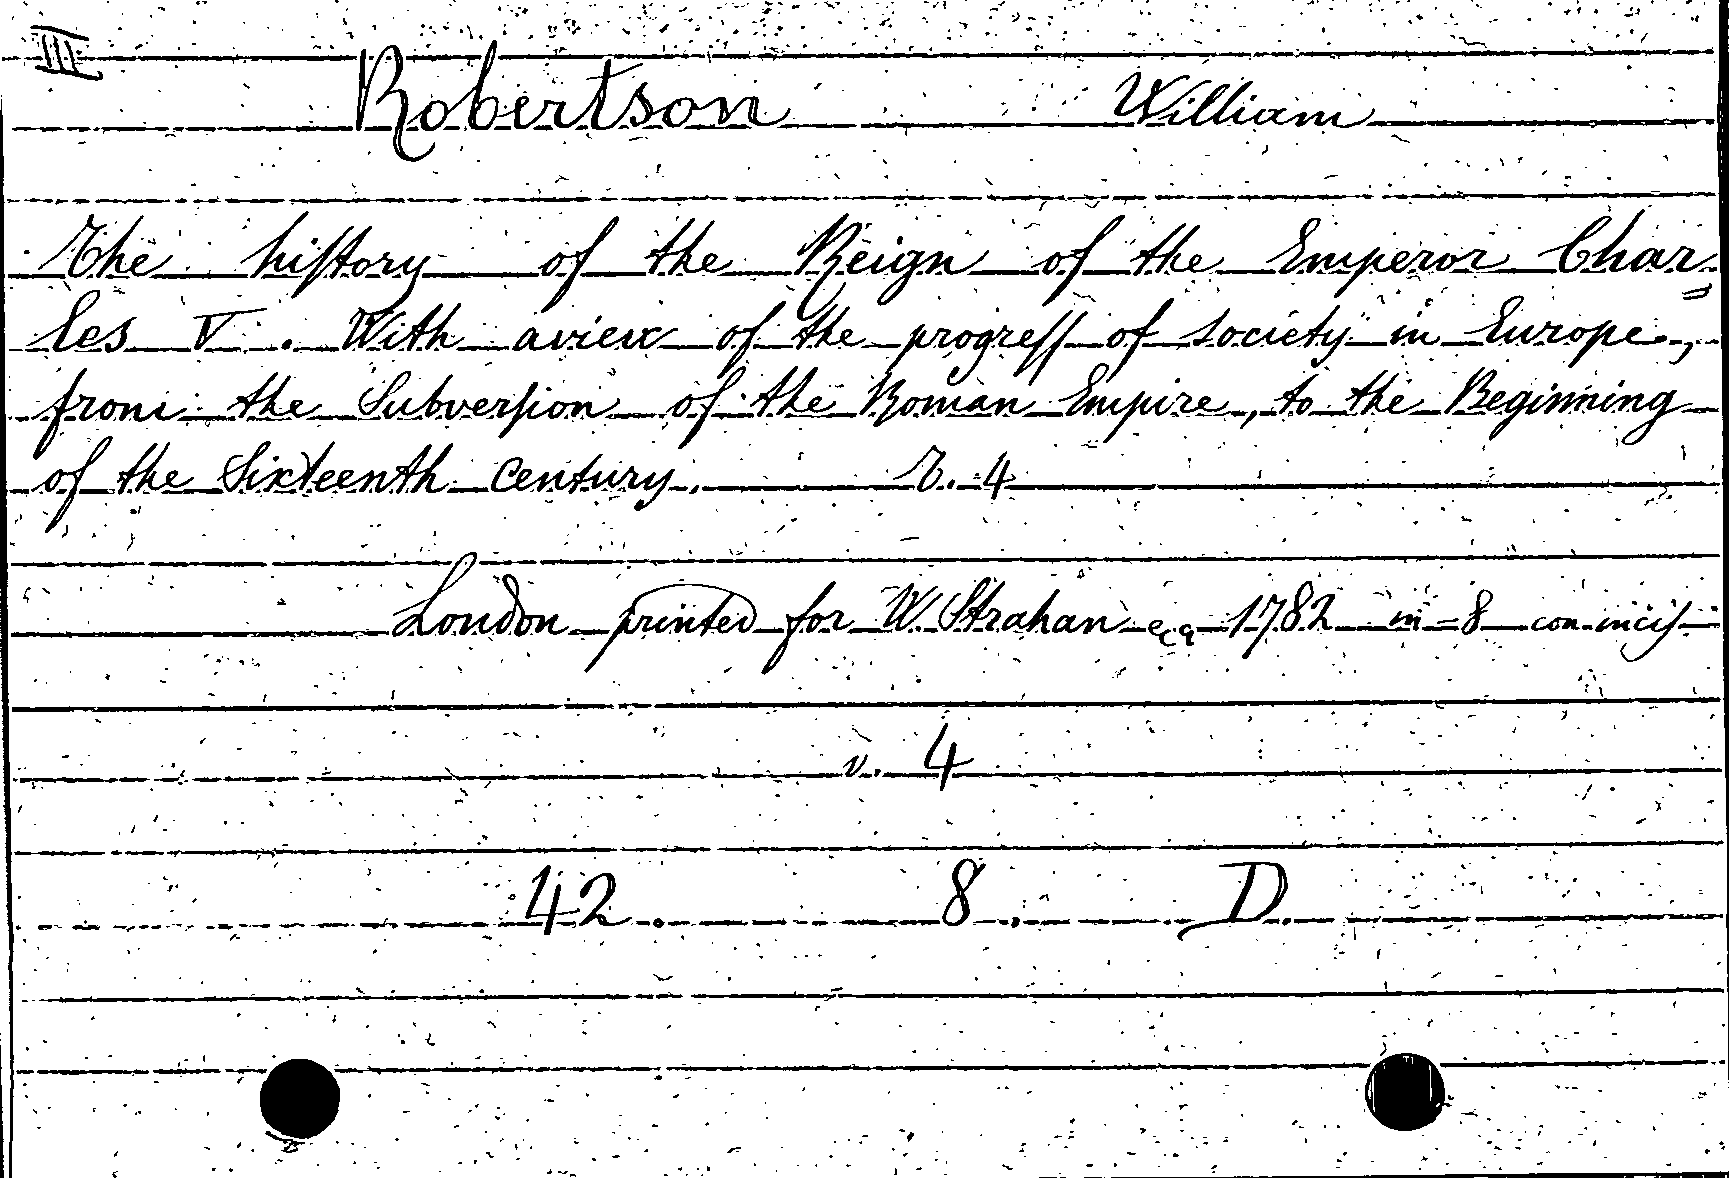 III
Robertson William
The hiſtory of the Reign of the Emperor Char=
les V. With a view of the progreſſ of society in Europe,
from the Subverſion of the Roman Empire, to the Beginning
of the Sixteenth century. T. 4
London printed for W. Strahan ecc 1782 in-8 con inciſ.
v. 4
42. 8. D.